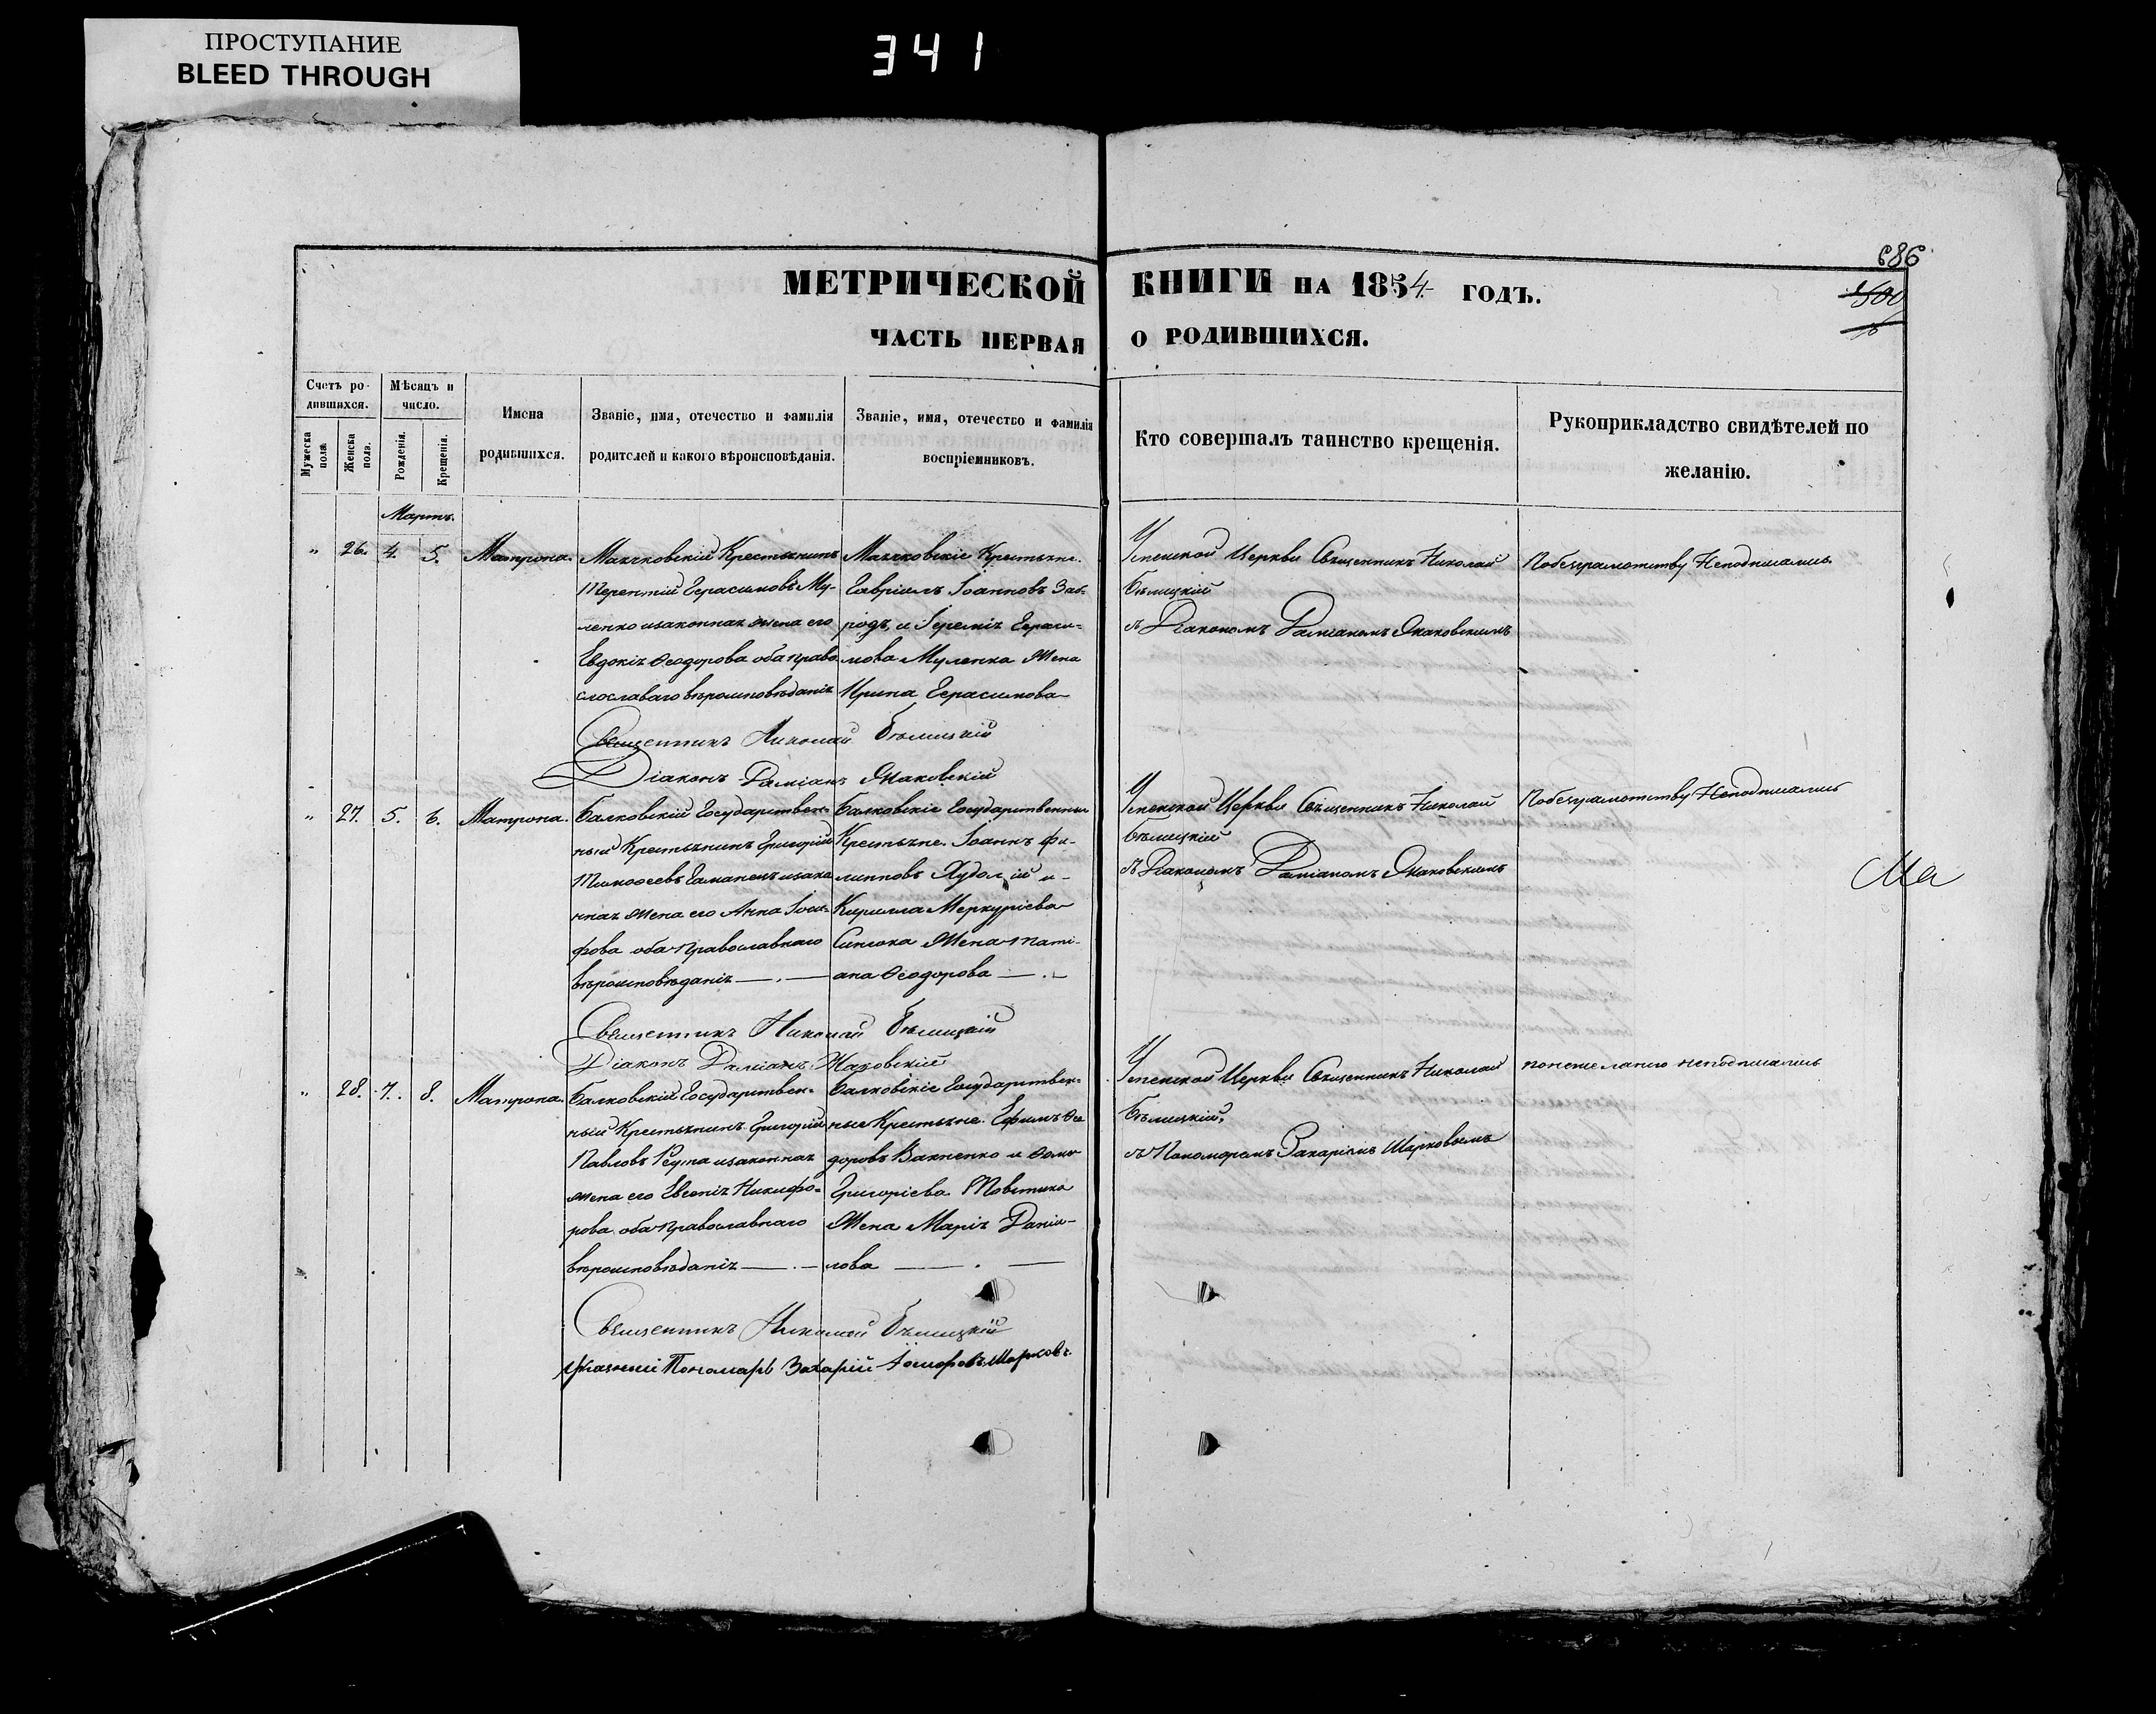 ПРОСТУПАНИЕ
BLEED THROUGH
341
686
МЕТРИЧЕСКОЙ КНИГИ НА 1854 ГОДЪ.
ЧАСТЬ ПЕРВАЯ О РОДИВШИХСЯ.
Счетъ родившихся.
Мужеска пола.
Женска пола.
Мѣсяцъ и число.
Рожденія.
Крещенія.
Имена
родившихся.
Званіе, имя, отечество и фамилія
родителей и какого вѣроисповѣданія.
Званіе, имя, отечество и фамилія
воспріемниковъ.
Кто совершалъ таинство крещенія.
Рукоприкладство свидѣтелей по
желанію.
Мартъ.
" 26. 4. 5. Матрона.
Маячковскій Крестьянинъ
Терентій Герасимовъ Му-
ленко изаконная жена его
Евдокія Ѳеодорова оба право
славнаго вѣроисповѣданія
Маячковскіе Крестьяне.
Гавріилъ Іоанновъ
родъ, и Іереміи Гераси-
мова Муленка Жена
Ирина Герасимова
Успенской Церкви Священникъ Николай
Бѣлицкій
съ Діакономъ Даміаномъ Жаковскимъ
Побезграмотству Неподписались.
Священникъ Николай Бѣлицкій
Діаконъ Даміанъ Жаковскій
" 27. 5. 6. Матрона.
Балковскій Государствен-
ный Крестьянинъ Григорій
Тимоѳеевъ изако
нная жена его Анна Іоси-
фова оба Православнаго
вѣроисповѣданія
Балковскіе Государственные
Крестьяне. Іоаннъ Фи-
липповъ Худолій и
Кирилла Меркуріева
Жена Таті-
ана Ѳеодорова
Успенской Церкви Священникъ Николай
Бѣлицкій
съ Діакономъ Даміаномъ Жаковскимъ
Побезграмотству Неподписались
Ма
Священникъ Николай Бѣлицкій
Діаконъ Даміанъ Жаковскій
" 28. 7. 8. Матрона.
Балковскій Государствен-
ный Крестьянинъ Григорій
Павловъ изаконная
жена его Евгенія Никифо-
рова оба Православнаго
вѣроисповѣданія
Балковскіе Государствен-
ные Крестьяне. Ефимъ Ѳео
доровъ и Ѳомы
Григоріева
Жена Марія Даніи-
лова
Успенской Церкви Священникъ Николай
Бѣлицкій,
съ Пономоремъ Захаріемъ Марковымъ
понежеланію неподписались
Священникъ Николай Бѣлицкій
Указный Пономарь Захарій Іосифовъ Марковъ.